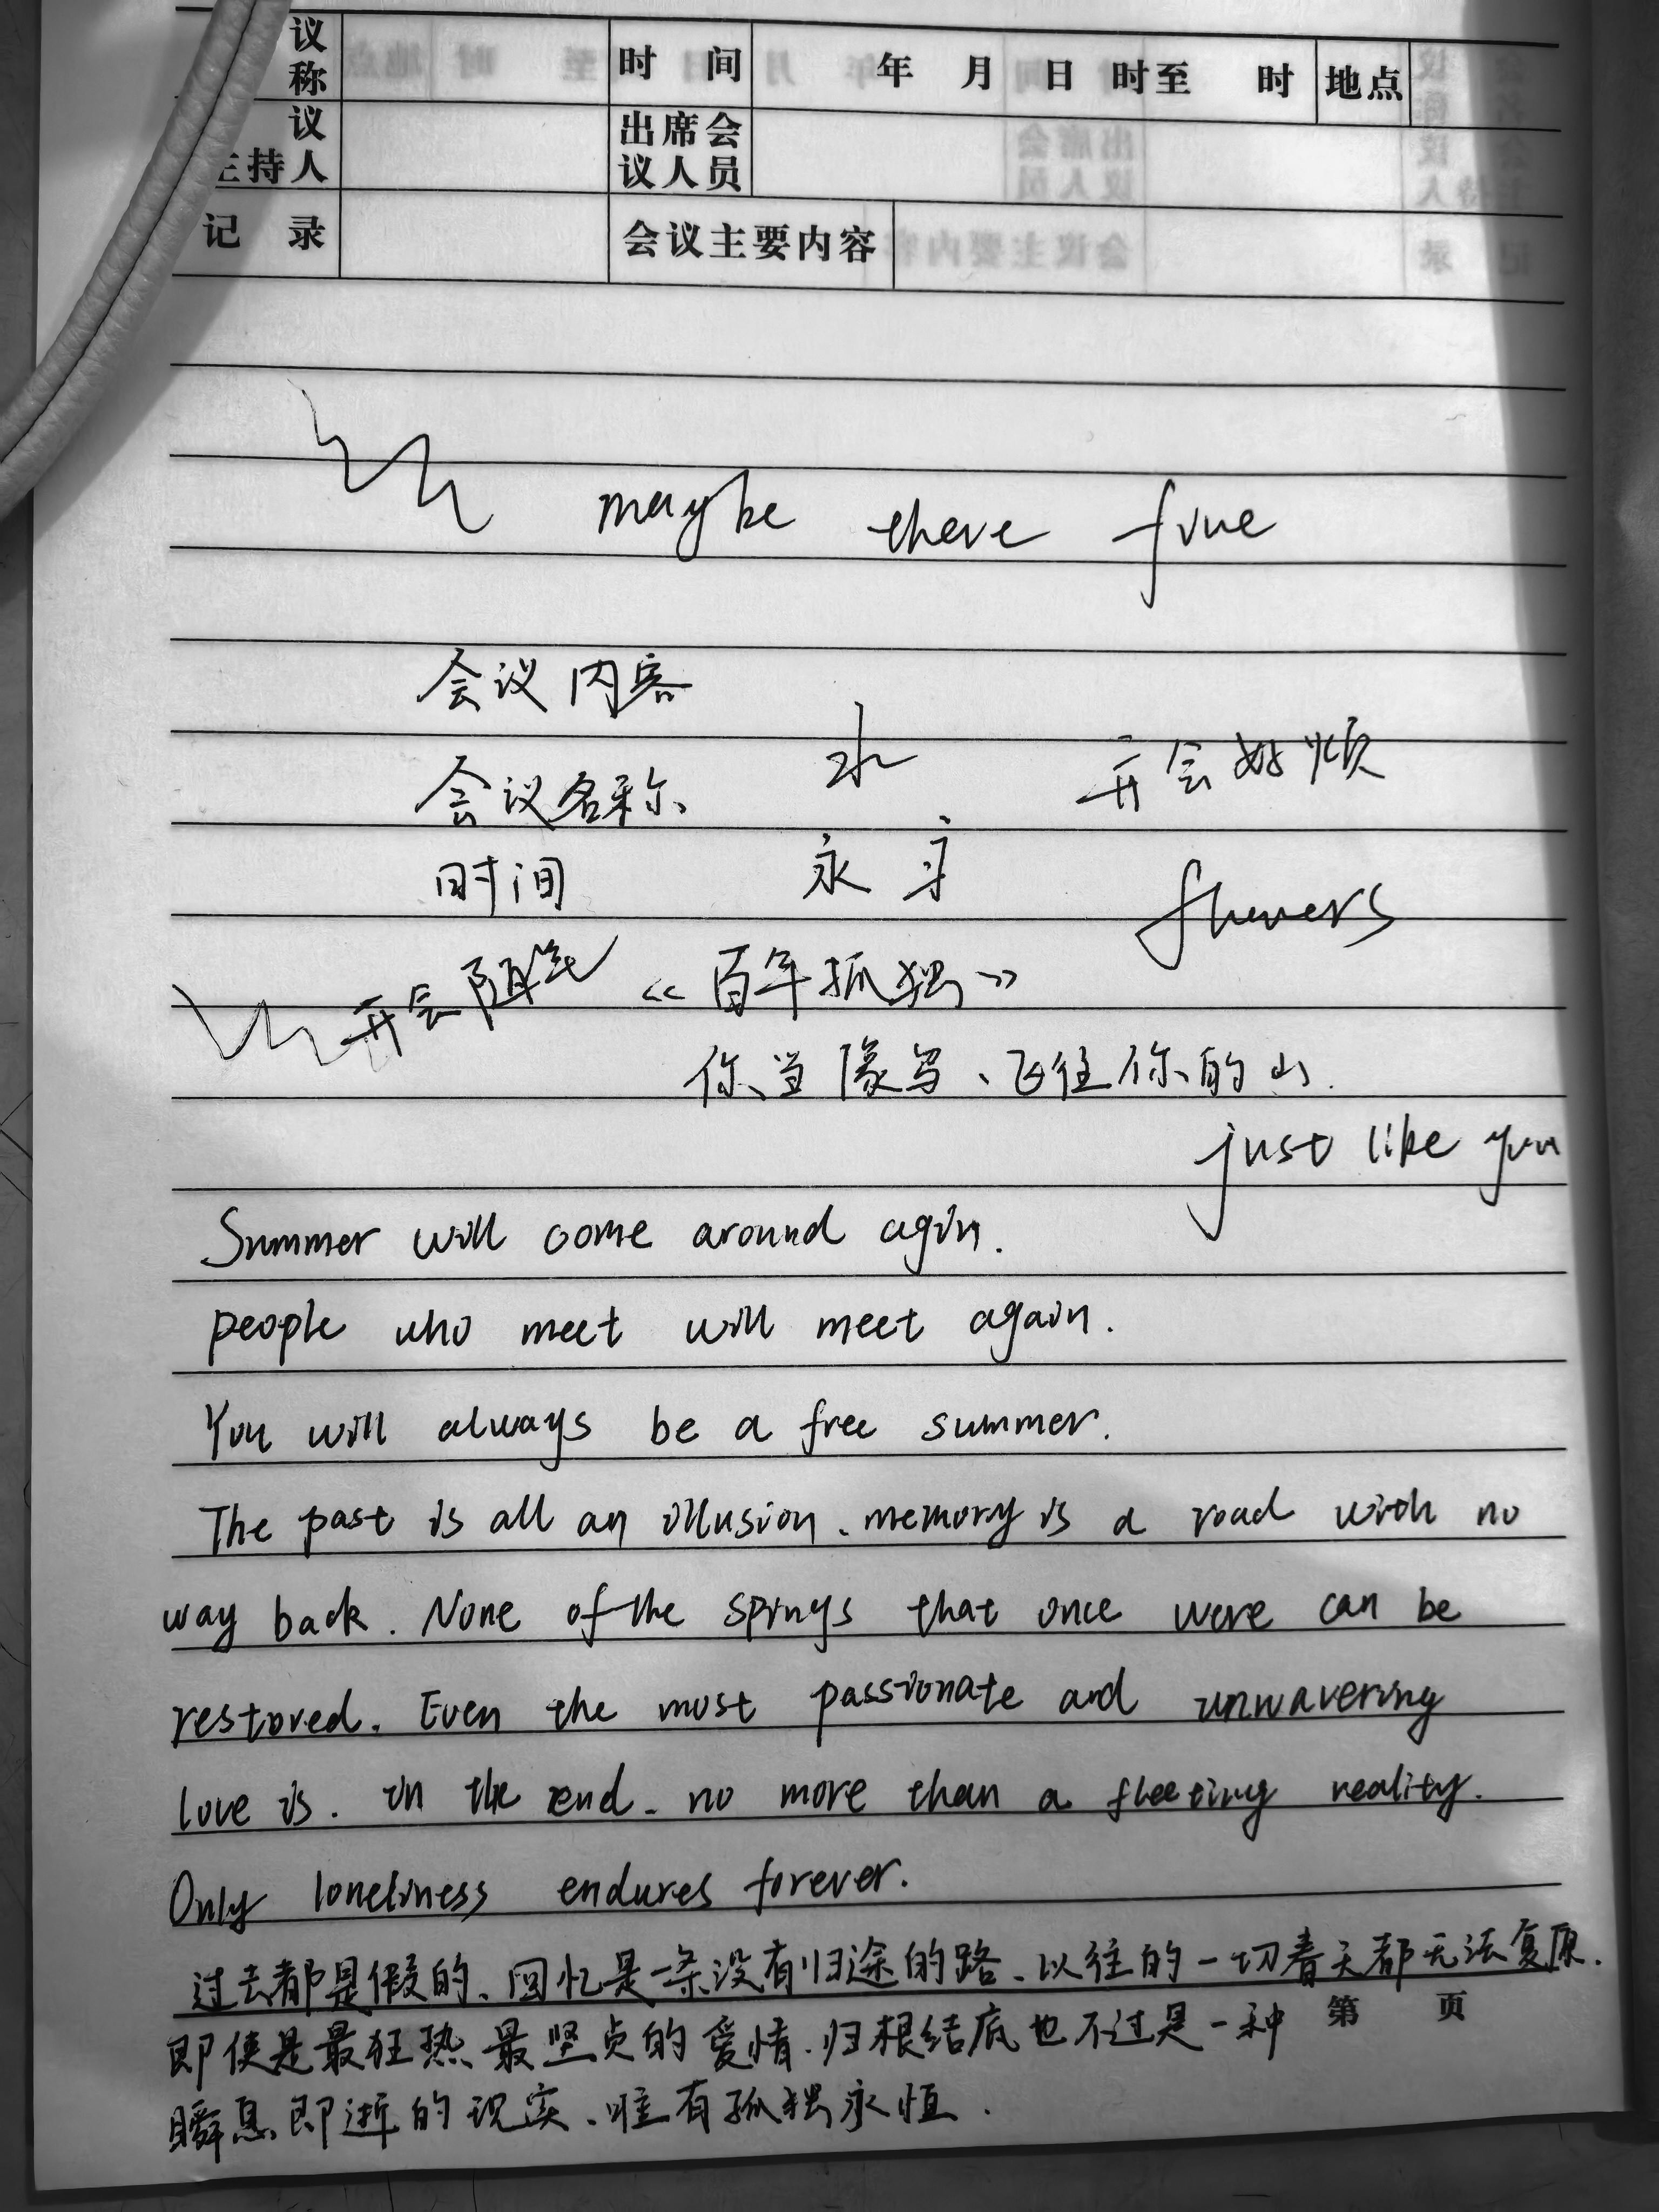 议 时 间 年 月 日 时至 时 地点
称
议 出席会
主持人 议人员
记 录 会议主要内容
maybe there
会议内容
水 开会好烦
会议名称
时间 永
flowers
开会随笔 《百年孤独》
你当像鸟、飞往你的山.
just like you
Summer will come around agin.
people who meet will meet again.
You will always be a free summer.
The past is all an illusion. memory is a road with no
way back. None of the springs that once were can be
restored. Even the most passionate and unwavering
love is. in the end. no more than a fleeting reality.
Only loneliness endures forever.
过去都是假的、回忆是一条没有归途的路、以往的一切春天都无法复原.
第 页
即使是最狂热最坚贞的爱情.归根结底也不过是一种
瞬息即逝的现实、唯有孤独永恒.